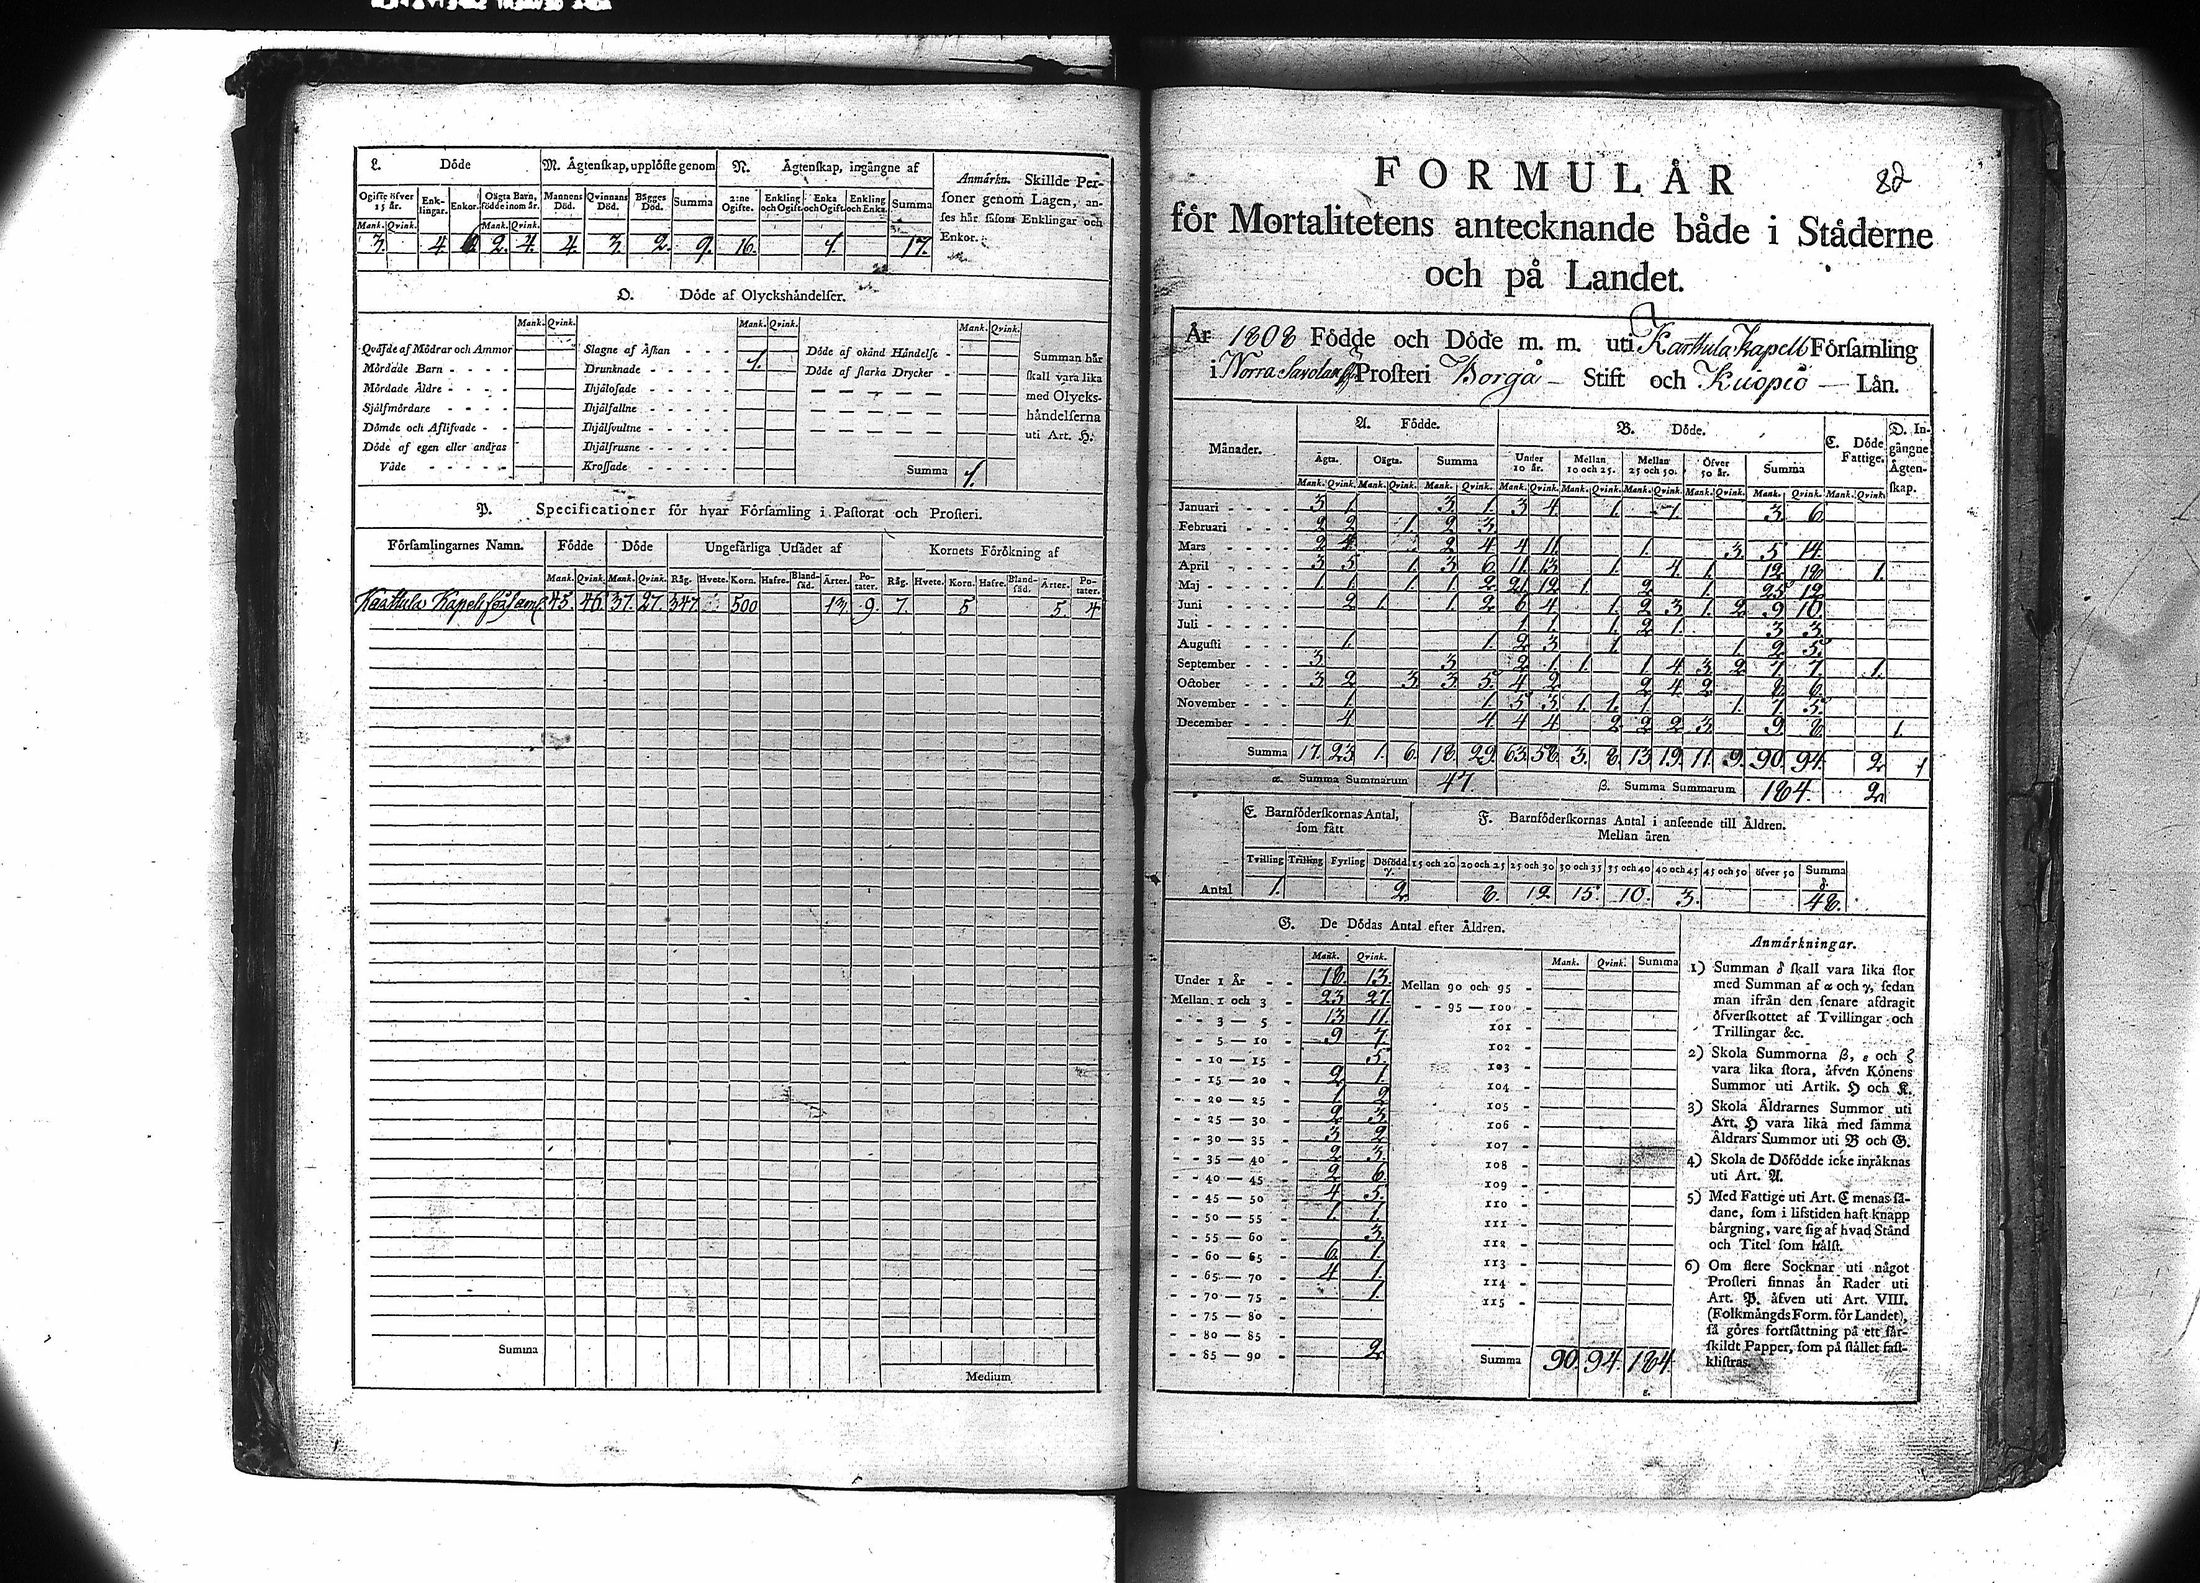 L. Döde
M. Ägtenskap, upplöste genom
N. Ägtenskap, ingångne af
Anmärkn. Skillde Per-
soner genom Lagen, an-
ses här såsom Enklingar och
Enkor.
Ogifte öfver 15 år. Enk-lingar. Enkor. Oägta Barn, födde inom år. Mannens Död. Qvinnans Död. Bägges Död. Summa 2:ne Ogifte. Enkling och Ogift. Enka och Ogift. Enkling och Enka. Summa
Mank. Qvink. Mank. Qvink.
3. 4. 6. 2. 4. 4. 3. 2. 9. 16. 1. 17.
O. Döde af Olyckshändelser.
Mank. Qvink. Mank. Qvink. Mank. Qvink.
Qväfde af Mödrar och Ammor
Mördade Barn - - - -
Mördade Äldre - - - -
Självmördare - - - -
Dömde och Aflifvade - -
Döde af egen eller andras
Våde - - - - -
Slagne af Åskan - - -
Drunknade - - - - 1.
Ihjälosade - - - -
Ihjälfallne - - - -
Ihjälsvultne - - - -
Ihjälfrusne - - - -
Krossade - - - - -
Döde af okänd Händelse -
Döde af starka Drycker -
Summa 1.
Summan här
skall vara lika
med Olycks-
händelserna
uti Art. H.
P. Specificationer för hvar Församling i Pastorat och Prosteri.
Församlingarnes Namn. Födde Döde Ungefärliga Utsädet af Kornets Förökning af
Mank. Qvink. Mank. Qvink. Råg. Hvete. Korn. Hafre. Bland-säd. Ärter. Po-tater. Råg. Hvete. Korn. Hafre. Bland-säd. Ärter. Po-tater.
45. 46. 37. 27. 347. 500 13. 9. 7. 5 5. 4
Summa
Medium
FORMULÄR
82
för Mortalitetens antecknande både i Städerne
och på Landet.
År 1808 Födde och Döde m. m. uti Karttula Kapell Församling
i Norra Savolax Prosteri Borgå - Stift och Kuopio - Län.
Månader. A. Födde. B. Döde. C. Döde Fattige. D. In-gångne Ägten-skap.
Ägta. Oägta. Summa Under 10 år. Mellan 10 och 25. Mellan 25 och 50. Öfver 50 år. Summa
Mank. Qvink. Mank. Qvink. Mank. Qvink. Mank. Qvink. Mank. Qvink. Mank. Qvink. Mank. Qvink. Mank. Qvink. Mank. Qvink.
Januari - - - - 3 1. 3. 1. 3 4 1. 1. 3. 6.
Februari - - - 2 2 1. 2 3
Mars - - - - 2 4 2 4 4 11. 1. 3. 5 14.
April - - - - 3 5 1. 3 6 11 13 1. 4. 1. 12 18 1.
Maj - - - - 1. 1. 1. 1. 2 21 12 1. 2 1. 25 12
Juni - - - - 2 1. 1. 2 6 4 1. 2 3 1. 2 9 10
Juli - - - - 1. 1. 1. 2 1. 3 3
Augusti - - - 1. 1. 2 3 1 1. 2 5.
September - - - 3 3 2 1. 1 1 4 3 2 7 7 1.
October - - - 3 2 3 3 5 4 2 2 4 2 8 6
November - - - 1. 1. 5 3 1. 1. 1 1. 7 5.
December - - - 4 4 4 4 2 2 2 3. 9 8 1.
Summa 17. 23 1. 6. 18. 29. 63. 58 3. 8. 13 19. 11. 9. 90. 94. 2 1
α. Summa Summarum 47. β. Summa Summarum 184. 2
E. Barnföderskornas Antal,
som fått
F. Barnföderskornas Antal i anseende till Åldren.
Mellan åren
Tvilling Trilling Fyrling Dödfödd γ. 15 och 20 20 och 25 25 och 30 30 och 35 35 och 40 40 och 45 45 och 50 öfver 50 Summa δ.
Antal 1. 2 8. 12 15. 10. 3. 48.
G. De Dödas Antal efter Åldren.
Mank. Qvink. Mank. Qvink. Summa
Under 1 År - - 18. 13.
Mellan 1 och 3 - 23 27.
- - 3 — 5 - 13 11.
- - 5 — 10 - 9 7.
- - 10 — 15 - 5.
- - 15 — 20 - 2 1.
- - 20 — 25 - 1 2
- - 25 — 30 - 2 3.
- - 30 — 35 - 3 2
- - 35 — 40 - 2 3.
- - 40 — 45 - 2 6
- - 45 — 50 - 4 5.
- - 50 — 55 - 1. 1.
- - 55 — 60 - 3.
- - 60 — 65 - 6. 1.
- - 65 — 70 - 4 1.
- - 70 — 75 - 1.
- - 75 — 80 -
- - 80 — 85 -
- - 85 — 90 - 2
Mellan 90 och 95 -
- - 95 — 100 -
101 -
102 -
103 -
104 -
105 -
106 -
107 -
108 -
109 -
110 -
111 -
112 -
113 -
114 -
115 -
Summa 90. 94. 184.
ε.
Anmärkningar.
1) Summan δ skall vara lika stor
med Summan af α och γ, sedan
man ifrån den senare afdragit
öfverskottet af Tvillingar och
Trillingar &c.
2) Skola Summorna β, ε och ζ
vara lika stora, äfven Könens
Summor uti Artik. H och K.
3) Skola Åldrarnes Summor uti
Art. H vara lika med samma
Åldrars Summor uti B och G.
4) Skola de Dödfödde icke inräknas
uti Art. A.
5) Med Fattige uti Art. C menas så-
dane, som i lifstiden haft knapp
bärgning, vare sig af hvad Stånd
och Titel som hälst.
6) Om flere Socknar uti något
Prosteri finnas än Rader uti
Art. P. äfven uti Art. VIII.
(Folkmängds Form. för Landet),
så göres fortsättning på ett sär-
skildt Papper, som på stället fast-
klistras.